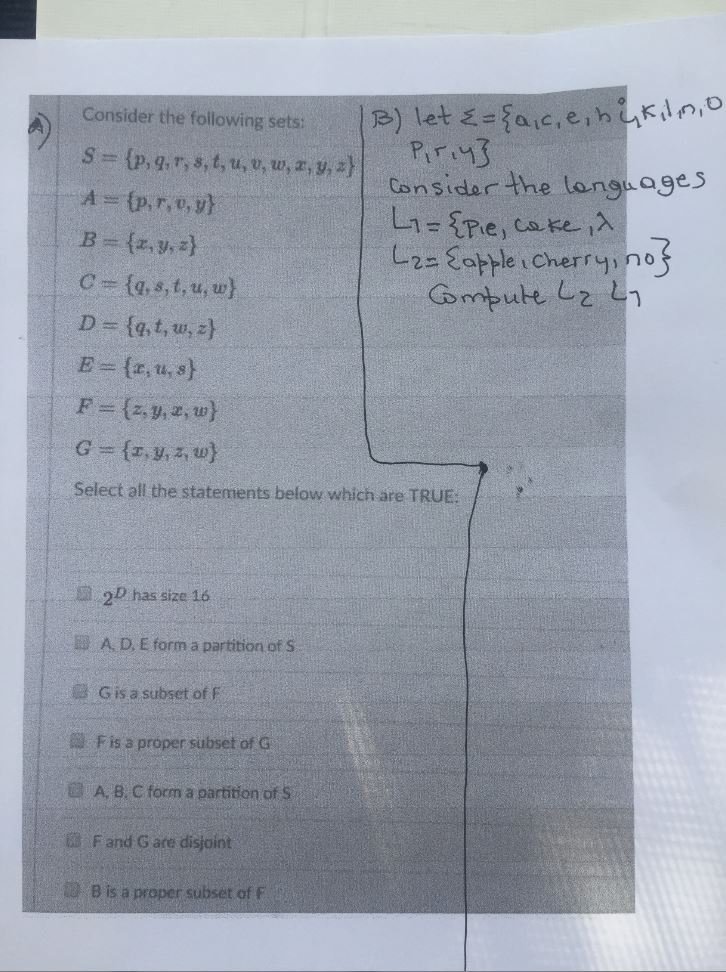 A)
Consider the following sets:
S = {p, q, r, s, t, u, v, w, x, y, z}
A = {p, r, v, y}
B = {x, y, z}
C = {q, s, t, u, w}
D = {q, t, w, z}
E = {x, u, s}
F = {z, y, x, w}
G = {x, y, z, w}
Select all the statements below which are TRUE:
2^D has size 16
A, D, E form a partition of S
G is a subset of F
F is a proper subset of G
A, B, C form a partition of S
F and G are disjoint
B is a proper subset of F
B) let Σ={a,c,e,h,i,k,l,n,o
p,r,y}
Consider the languages
L1={pie, cake, λ
L2={apple, cherry, no}
Compute L2 L1